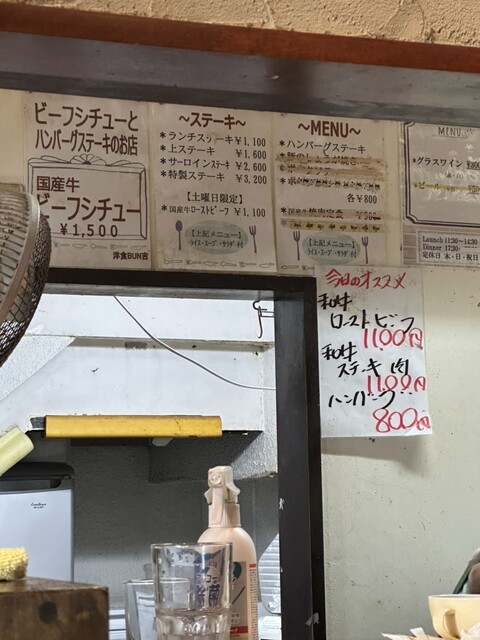 ビーフシチューと
ハンバーグステーキのお店
国産牛
ビーフシチュー
￥1,500
洋食BUN吉
～ステーキ～
＊ランチステーキ ￥1,100
＊上ステーキ ￥1,600
＊サーロインステーキ ￥2,600
＊特製ステーキ ￥3,200
【土曜日限定】
＊国産牛ローストビーフ ￥1,100
【上記メニュー】
ライス・スープ・サラダ 付
～MENU～
＊ハンバーグステーキ
各￥800
【上記メニュー】
ライス・スープ・サラダ 付
MENU
＊グラスワイン
＊ビール
Launch 11:30～14:30
Dinner 17:30-
定休日 木・日・祝日
今日のオススメ
和牛
ローストビーフ
1100円
和牛
ステーキ 肉
1100円
ハンバーグ
800円